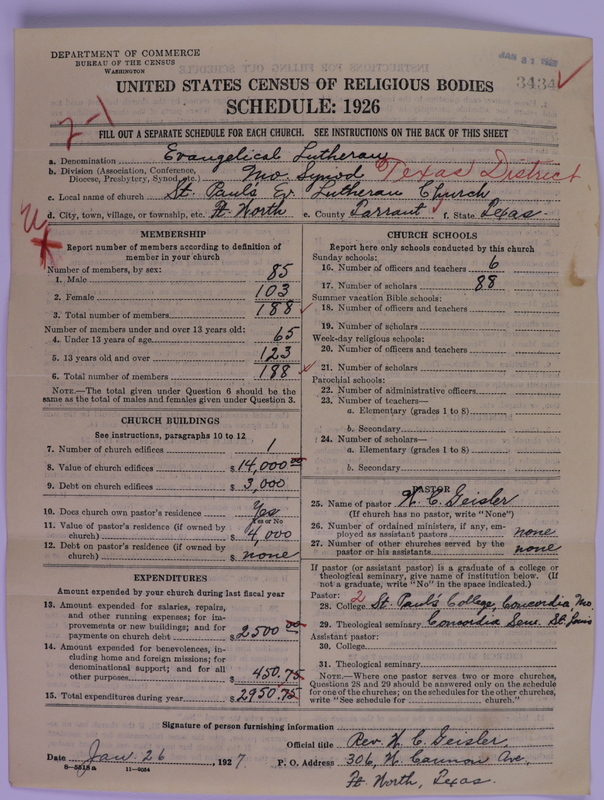 DEPARTMENT OF COMMERCE
BUREAU OF THE CENSUS
WASHINGTON
3434
UNITED STATES CENSUS OF RELIGIOUS BODIES
SCHEDULE: 1926
7-1
FILL OUT A SEPARATE SCHEDULE FOR EACH CHURCH. SEE INSTRUCTIONS ON THE BACK OF THIS SHEET
a. Denomination Evangelical Lutheran
b. Division (Association, Conference, Diocese, Presbytery, Synod, etc.) Mo. Synod Texas District
c. Local name of church St. Paul's Ev. Lutheran Church
d. City, town, village, or township, etc. Ft. Worth e. County Tarrant f. State Texas.
MEMBERSHIP
Report number of members according to definition of member in your church
Number of members, by sex:
1. Male 85
2. Female 103
3. Total number of members 188
Number of members under and over 13 years old:
4. Under 13 years of age 65
5. 13 years old and over 123
6. Total number of members 188
NOTE.—The total given under Question 6 should be the same as the total of males and females given under Question 3.
CHURCH BUILDINGS
See instructions, paragraphs 10 to 12
7. Number of church edifices 1
8. Value of church edifices $14,000.00
9. Debt on church edifices $3,000
10. Does church own pastor's residence Yes
Yes or No
11. Value of pastor's residence (if owned by church) $4,000
12. Debt on pastor's residence (if owned by church) $none
EXPENDITURES
Amount expended by your church during last fiscal year
13. Amount expended for salaries, repairs, and other running expenses; for improvements or new buildings; and for payments on church debt $2500 00
14. Amount expended for benevolences, including home and foreign missions; for denominational support; and for all other purposes $450.75
15. Total expenditures during year $2950.75
CHURCH SCHOOLS
Report here only schools conducted by this church
Sunday schools:
16. Number of officers and teachers 6
17. Number of scholars 88
Summer vacation Bible schools:
18. Number of officers and teachers
19. Number of scholars
Week-day religious schools:
20. Number of officers and teachers
21. Number of scholars
Parochial schools:
22. Number of administrative officers
23. Number of teachers—
a. Elementary (grades 1 to 8)
b. Secondary
24. Number of scholars—
a. Elementary (grades 1 to 8)
b. Secondary
PASTOR
25. Name of pastor W. C. Geisler
(If church has no pastor, write "None")
26. Number of ordained ministers, if any, employed as assistant pastors none
27. Number of other churches served by the pastor or his assistants none
If pastor (or assistant pastor) is a graduate of a college or theological seminary, give name of institution below. (If not a graduate, write "No" in the space indicated.)
Pastor: 2
28. College St. Paul's College, Concordia, Mo.
29. Theological seminary Concordia Sem. St. Louis
Assistant pastor:
30. College
31. Theological seminary
NOTE.—Where one pastor serves two or more churches, Questions 28 and 29 should be answered only on the schedule for one of the churches; on the schedules for the other churches, write "See schedule for church."
Signature of person furnishing information
Official title Rev. W. C. Geisler
Date Jan 26 1927. P. O. Address 306, N. Cannon Ave,
8-5518a 11-9034 Ft. Worth, Texas.